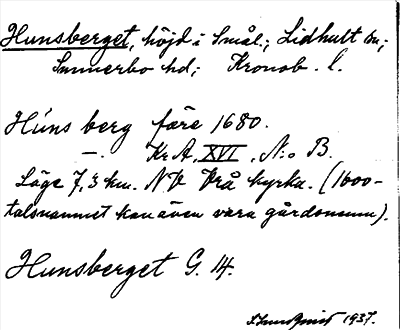 Hunsberget, höjd i Smål.; Lidhult sn;
Sunnerbo hd; Kronob. l.
Húns berg före 1680.
—. Kr. A, XVI, N:o B.
Läge 7,3 km. NV Vrå kyrka. (1600-
talsnamnet kan även vara gårdsnamn).
Hunsberget G. 14.
1937.